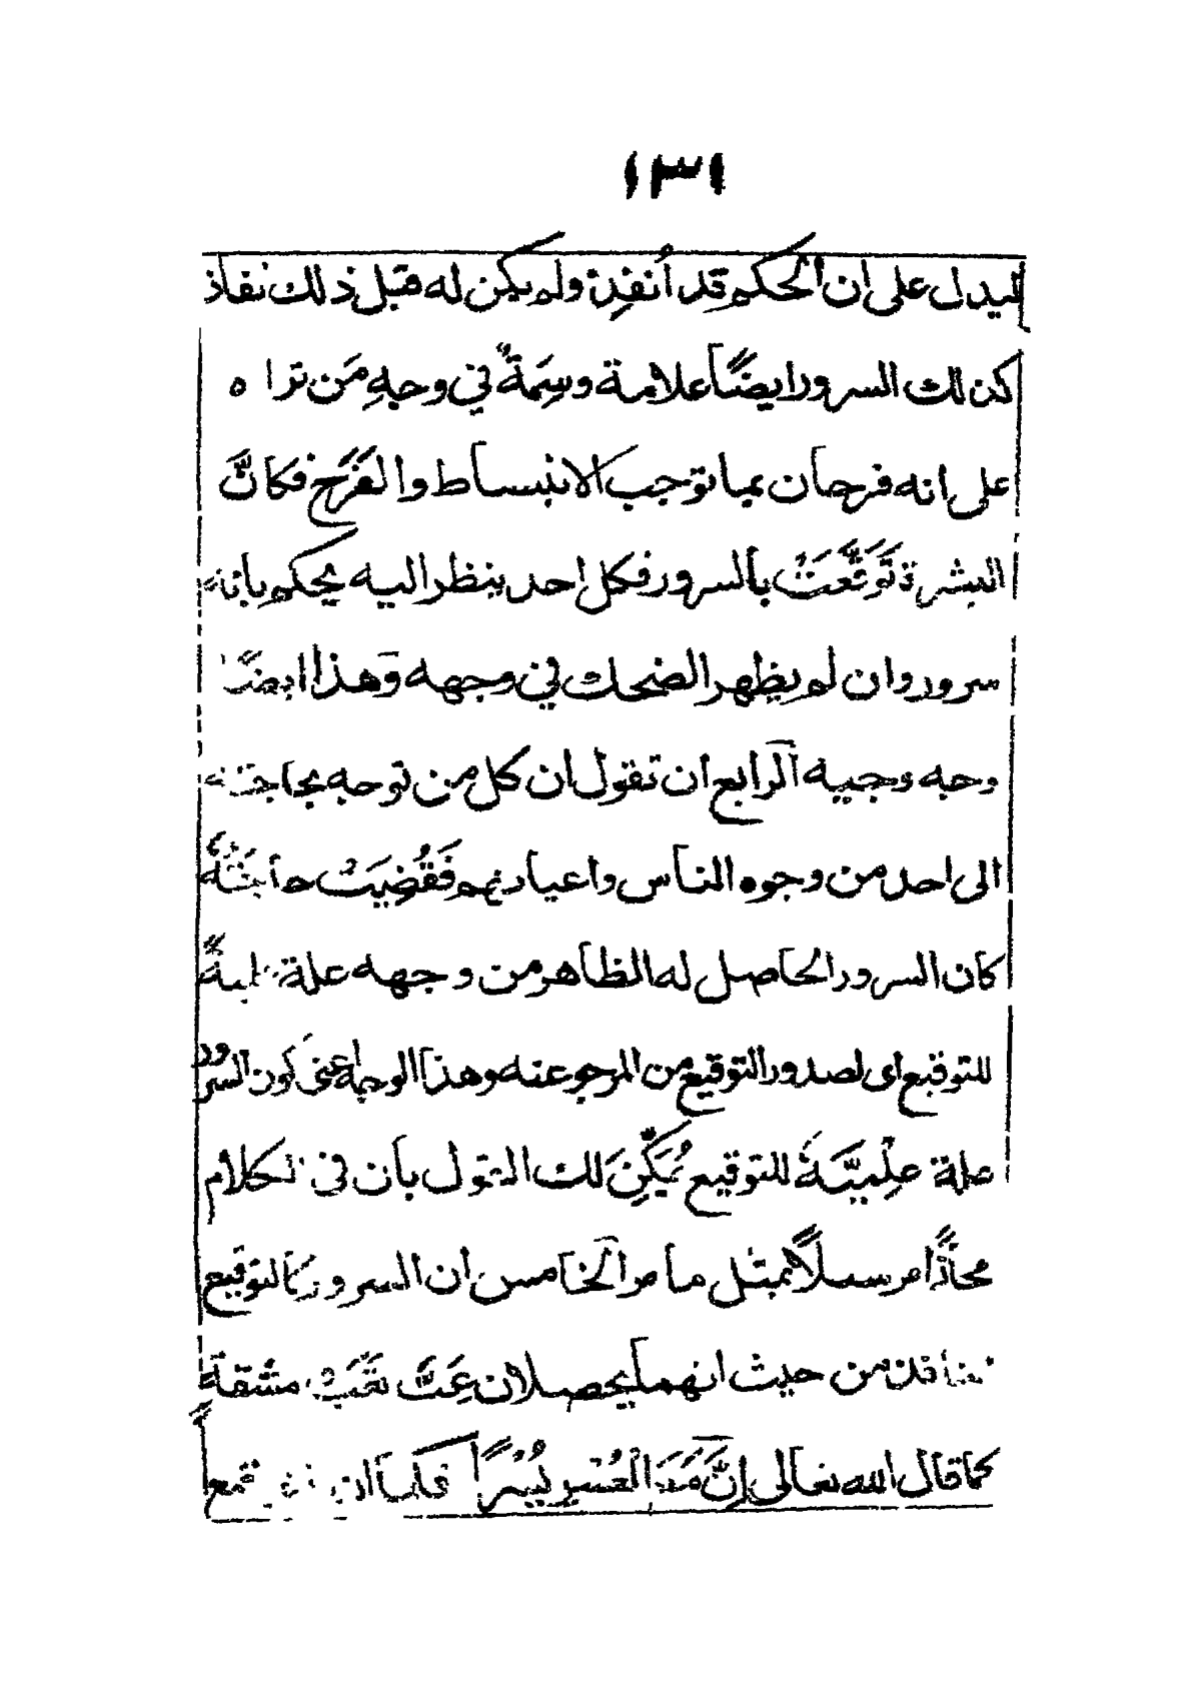 ١٣١
ليدل على ان الحكم قد أُنفِذ ولم يكن له قبل ذلك نفاذ
كذلك السرور ايضًا علامة وسِمَةٌ في وجهِ مَن تراه
على انه فرحان بما توجب الانبساط والفَرَح فكانَّ
البشرة تَوَقَّعَتْ بالسرور فكل احد ينظر اليه يحكم بانه
سرور وان لم يظهر الضحك في وجهه وهذا ايضًا
وجه وجيه الرابع ان تقول ان كل من توجه بحاجته
الى احد من وجوه الناس واعيادنهم فَقُضِيَتْ حاجَتُهُ
كان السرور الحاصل له الظاهر من وجهه علة
للتوقيع اى لصدور التوقيع من المرجو عنه وهذا الوجه اعنى كون السرور
علة عِلْمِيَّةً للتوقيع يُمَكِّنَ لك القول بأن في الكلام
مجاذًا مرسلًا بمثل ما مر الخامس ان السرور كالتوقيع
من حيث انهما يحصلان عَبَّ تعَبٍ مشقة
كما قال الله تعالى إِنَّ مَعَ العُسْرِ يُسْرًا فكما ان تمعا